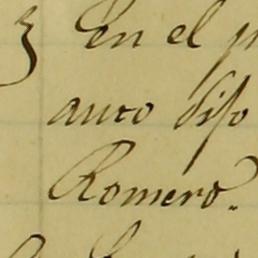 3 En el
auto dijo
Romero.